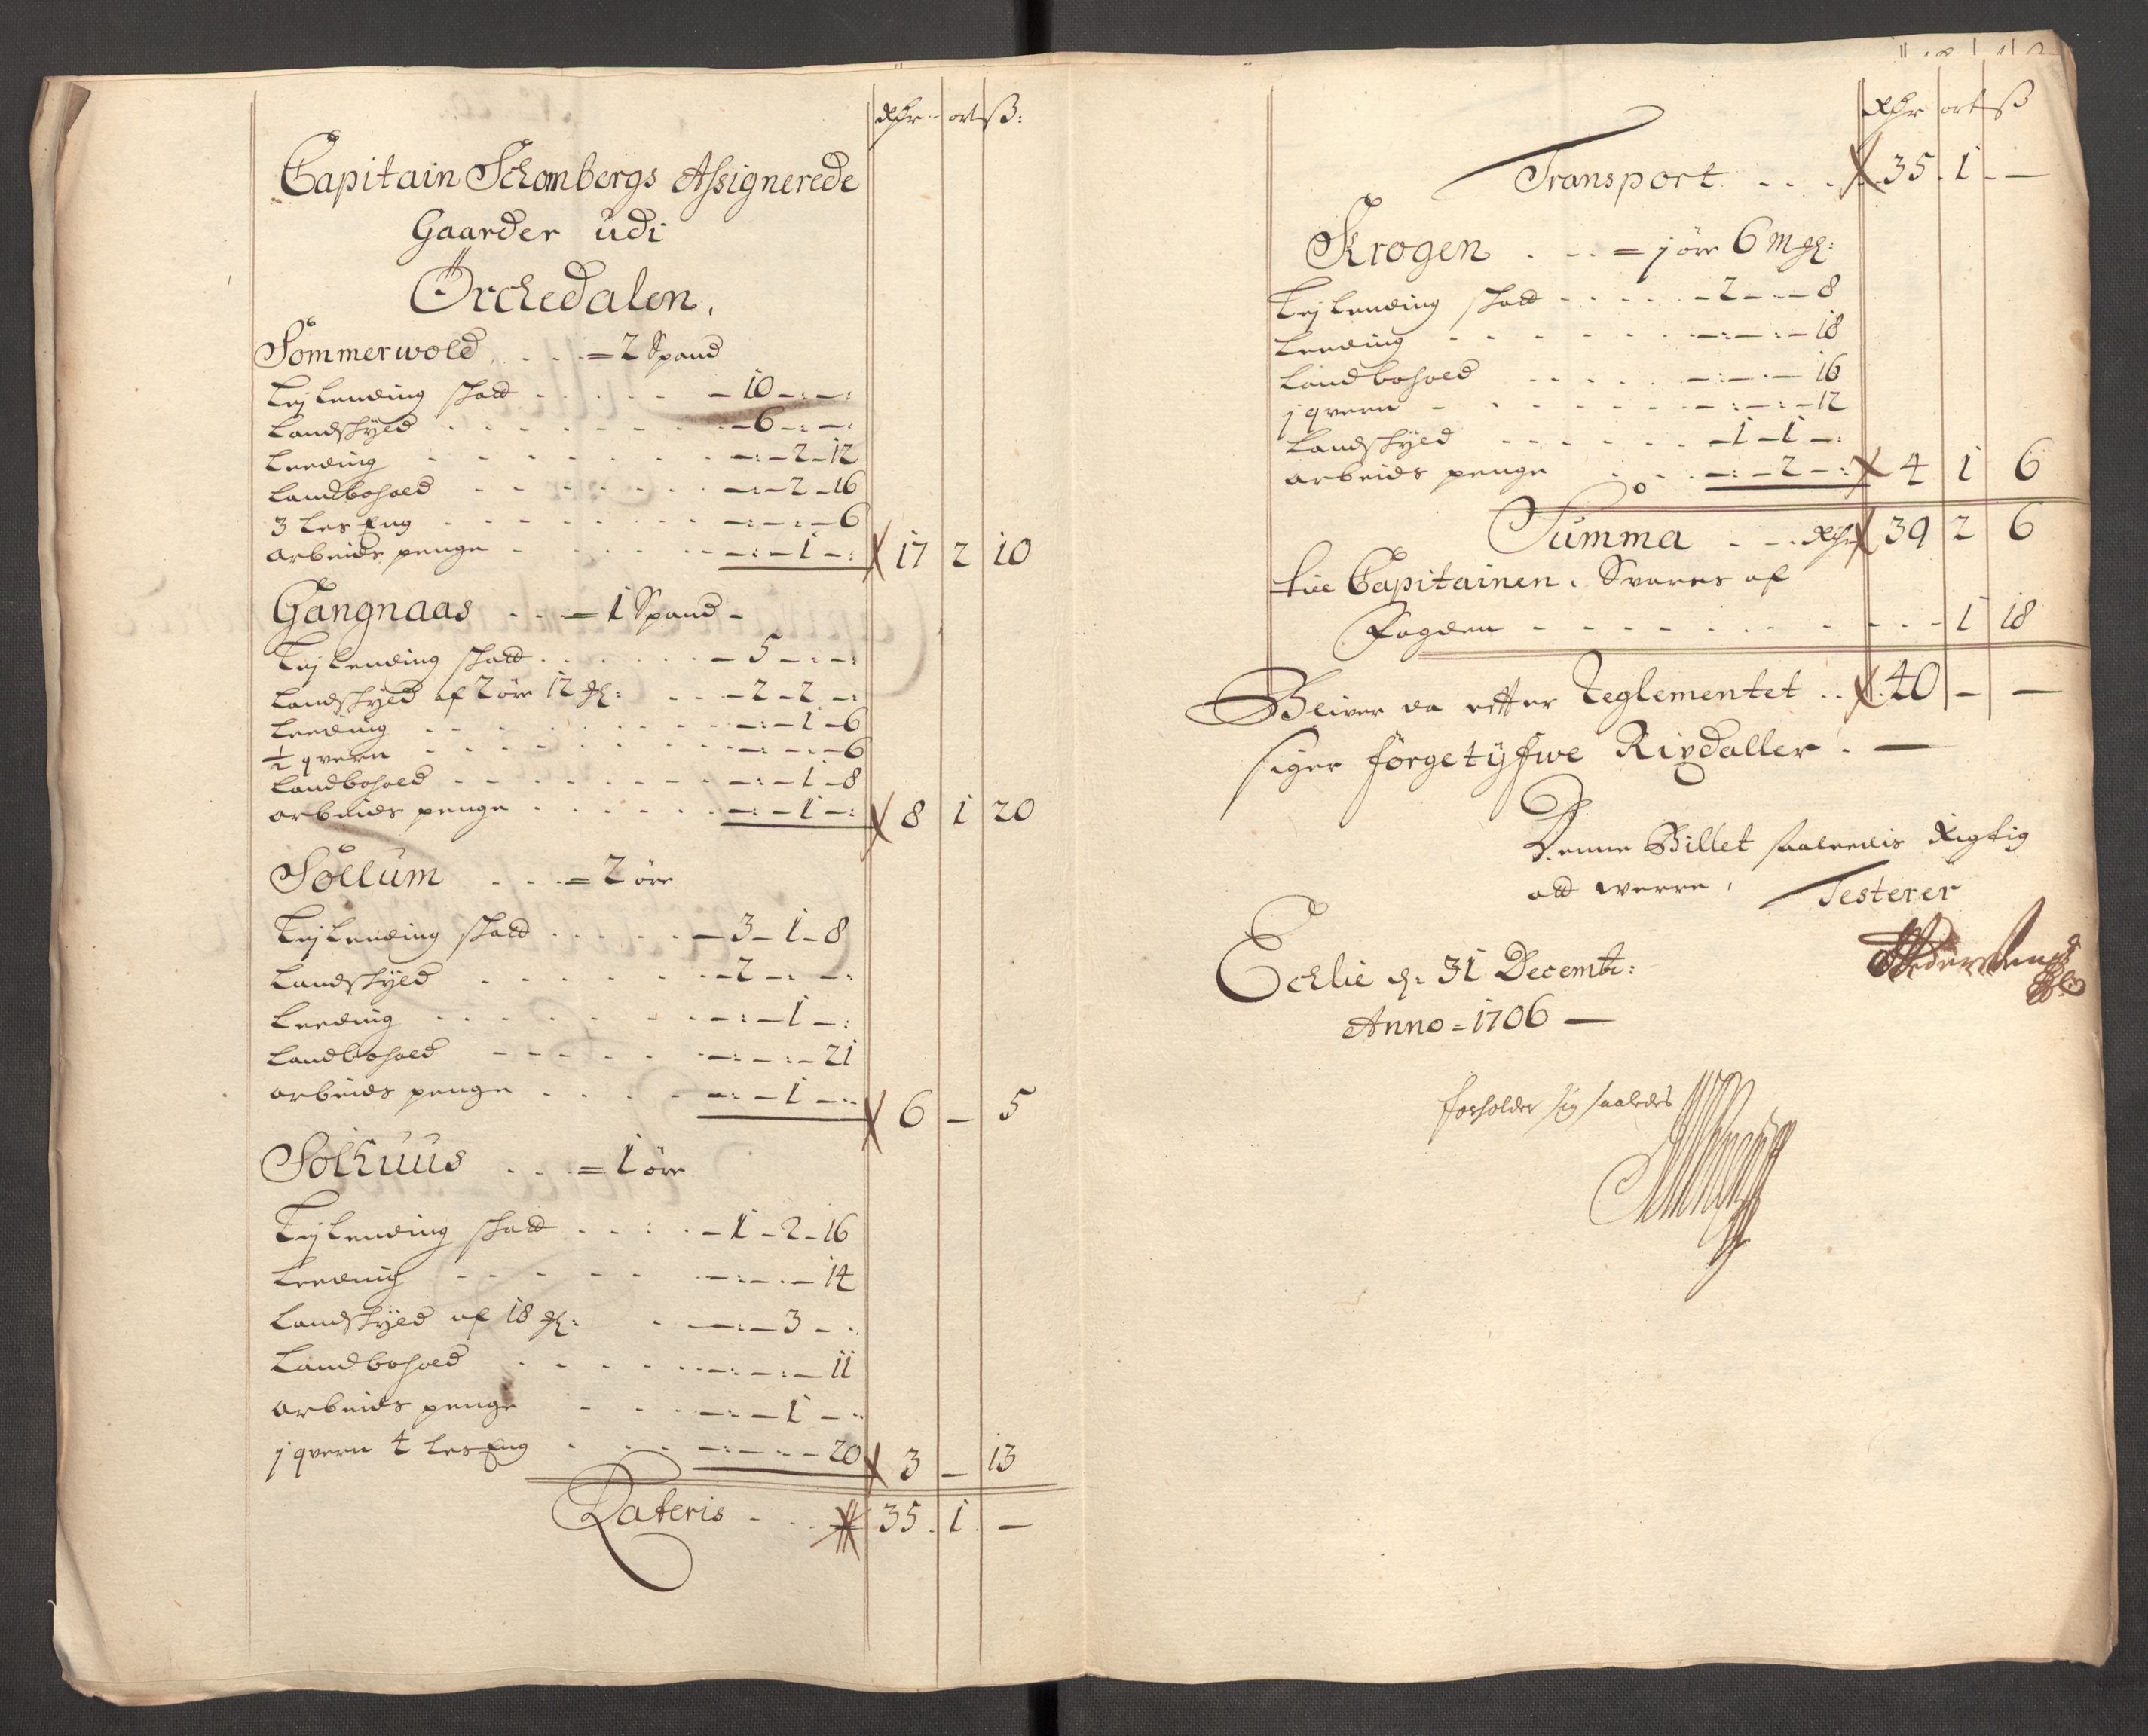 Rdr ort ß:
Capitain Schombergs Assignerede
Gaarder udi
Örchedalen.
Sommerwold . . . = 2 Spand
Leylending skatt . . . . . - 10 - : - :
Landskyld . . . . . . . - 6 - : - :
Leeding . . . . . . . - : - 2 - 12
Landbohold . . . . . . - : - 2 - 16
3 Les Eng . . . . . . . - : - : - 6
Arbeids penge . . . . . - : - 1 - : 17 2 10
Gangnaas . . . = 1 Spand -
Leylending skatt . . . . . - 5 - : - :
Landskyld af 2 öre 12 . . - 2 - 2 - :
Leeding . . . . . . . - : - 1 - 6
½ qvern . . . . . . . - : - : - 6
Landbohold . . . . . . - : - 1 - 8
Arbeids penge . . . . . - : - 1 - : 8 1 20
Söllum . . . = 2 öre
Leylending skatt . . . . . - 3 - 1 - 8
Landskyld . . . . . . - 2 - : - :
Leeding . . . . . . - : - 1 - :
Landbohold - - - - . . - : - : - 21
Arbeids penge . . . . - : - 1 - : 6 - 5
Solhuus . . . = 1 öre
Leylending skatt . . : . - 1 - 2 - 16
Leeding - - - - - - : - . - 14
Landskyld af 18 . . - : - 3 - :
Landbohold . . . . . - : - : - 11
Arbeids penge - . . - : - 1 - :
j qvern 4 Les Eng . . . - : - : - 20 3 - 13
Lateris - . . 35 . 1 . -
Rdr ort ß
Transport . . . . 35 . 1 . -
Krogen . . . = j öre 6 mgl:
Leylending skatt . . . . . - 2 - : - 8
Leeding . . . . . . . - : - : - 18
Landbohold . . . . . - : - : - 16
j qvern - . . . . . . - : - : - 12
Landskyld . . . . . . - 1 - 1 - :
Arbeids penge . . . - : - 2 - : 4 1 6
Summa . - . Rdr 39 2 6
till Capitainen. Svares af
Fogden - - - - - - - - - - - 1 18
Bliver da efter Reglementet . . 40 - -
siger förgetyfwe Rixdaller . -
Denne Billet saaledis Rigtig
att werre, Testerer
Echlie d: 31 Decembr:
Anno = 1706 -
forholder sig saaledes